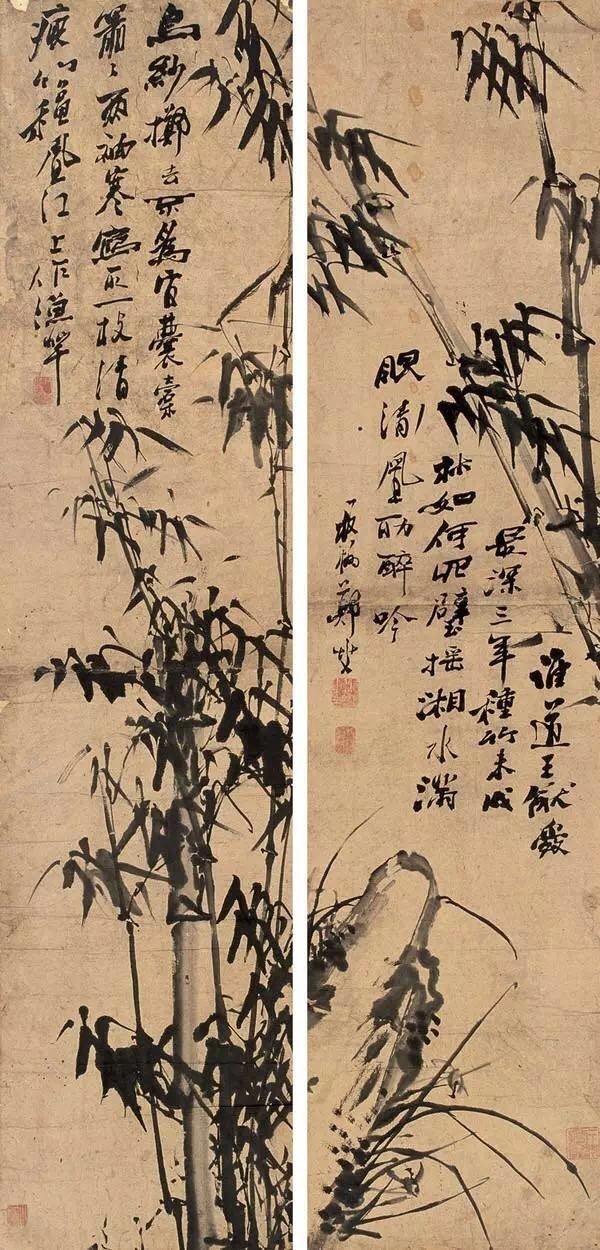 誰道王猷愛
最深三年種竹未成
林如何四壁搖湘水滿
眼清風助醉吟
板橋鄭燮
烏紗擲去不為官囊橐
蕭蕭兩袖寒寫取一枝清
瘦竹秋風江上作漁竿